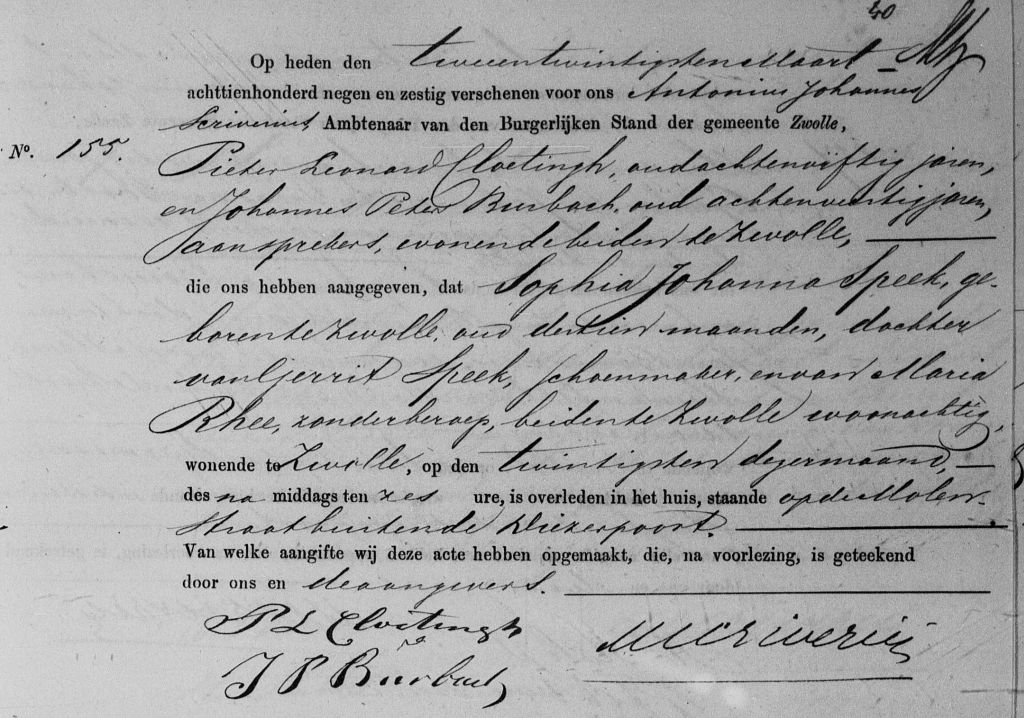 40
Op heden den tweeentwintigsten Maart
achttienhonderd negen en zestig verschenen voor ons Antonius Johannes
Scriverius, Ambtenaar van den Burgerlijken Stand der gemeente Zwolle,
No. 155.
Pieter Leonard Cloetingh, oud achtenvijftig jaren,
en Johannes Peter Burbach, oud achtenveertig jaren,
aansprekers, wonende beiden te Zwolle,
die ons hebben aangegeven, dat Sophia Johanna Speek, ge-
boren te Zwolle, oud dertien maanden, dochter
van Gerrit Speek, schoenmaker, en van Maria
Rhee, zonder beroep, beiden te Zwolle woonachtig,
wonende te Zwolle, op den twintigsten dezer maand,
des na middags ten zes ure, is overleden in het huis, staande op de Molen-
straat buiten de Diezerpoort.
Van welke aangifte wij deze acte hebben opgemaakt, die, na voorlezing, is geteekend
door ons en de aangevers.
P L Cloetingh
J P Burbach
Scriverius